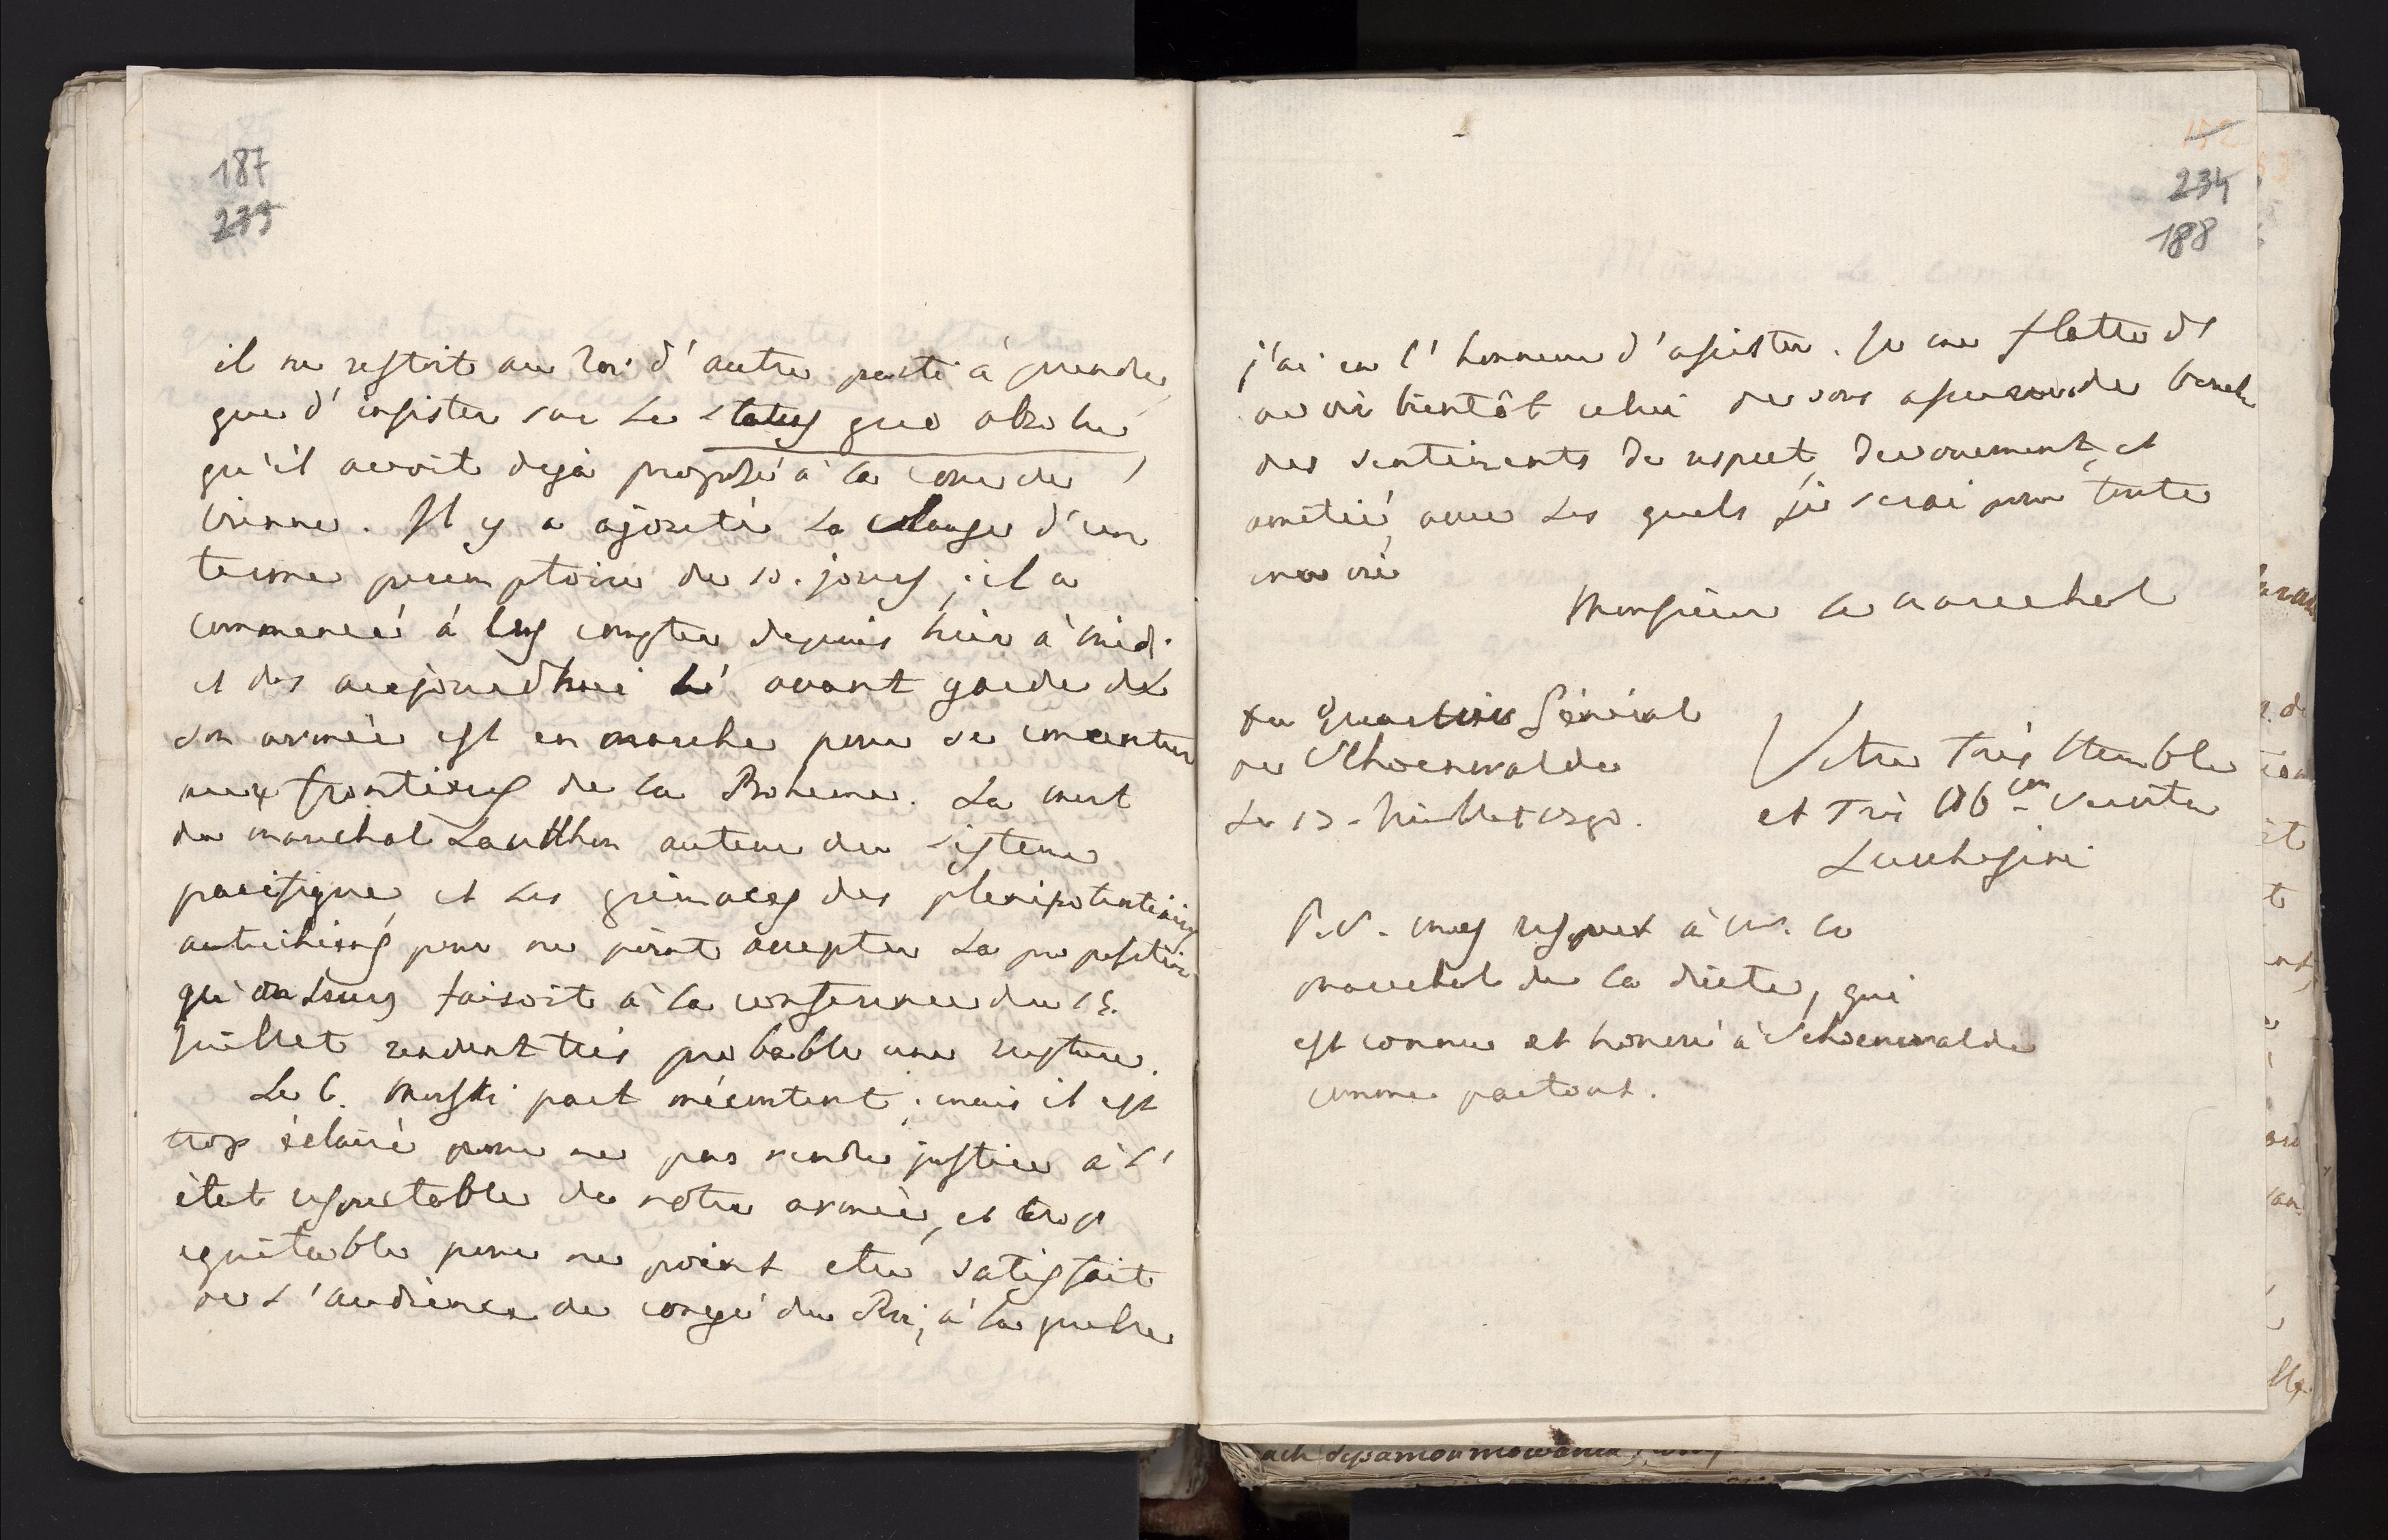 187
233
il ne restoit au Roi d'autre parti à prendre,
que d'insister sur Le status quo absolu
qu'il avoit dejà proposé à la cour de
vienne. Il y a ajouté La clause d'un
terme peremptoire de 10. jours; il a
commencé à les compter depuis hier à midi
et des aujourdhui L' avant garde de
son armée est en marche pour se concentrer
aux frontieres de la Boheme. La mort
du marechal Laudhon auteur du sisteme
pacifique, et Les grimaces des plenipotentiaires
autrichiens pour ne point accepter La proposition
qu'on Leurs faisoit à la conference du 15.
juillet rendent tres probable une rupture.
Le C. Morski part mécontent; mais il est
trop éclairé pour ne pas rendre justice à L'
état respectable de notre armée, et trop
equitable pour ne point etre satisfait
de L'audience de congé du Roi, à la quelle
152
234
188
j'ai eu l'honneur d'assister. Je me flatte d'
avoir bientôt celui de vous assurer de bouche
des sentiments de respect, devouement, et
amitié, avec Les quels je serai pour toute
ma vie
Monsieur Le marechal
Du Quartier Général
de Schoenwalde
Le 13. Juillet 1790.
Votre Très Humble
et Très Ob. serviteur
Lucchesini
P.S. mes respects à Mr. Le
marechal de la diete, qui
est connu et honoré à Schoenwalde
comme partout.